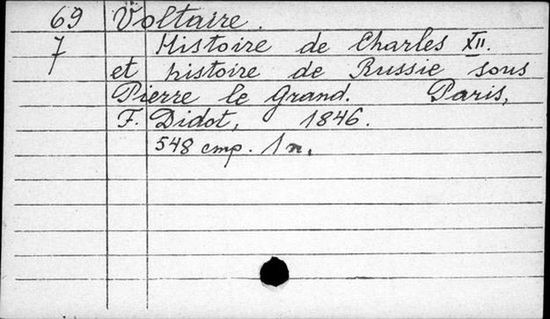 69 Voltaire.
7 Histoire de Charles XII.
et histoire de Russie sous
Pierre le Grand. Paris,
F. Didot, 1846.
548 cmp. 1 n.